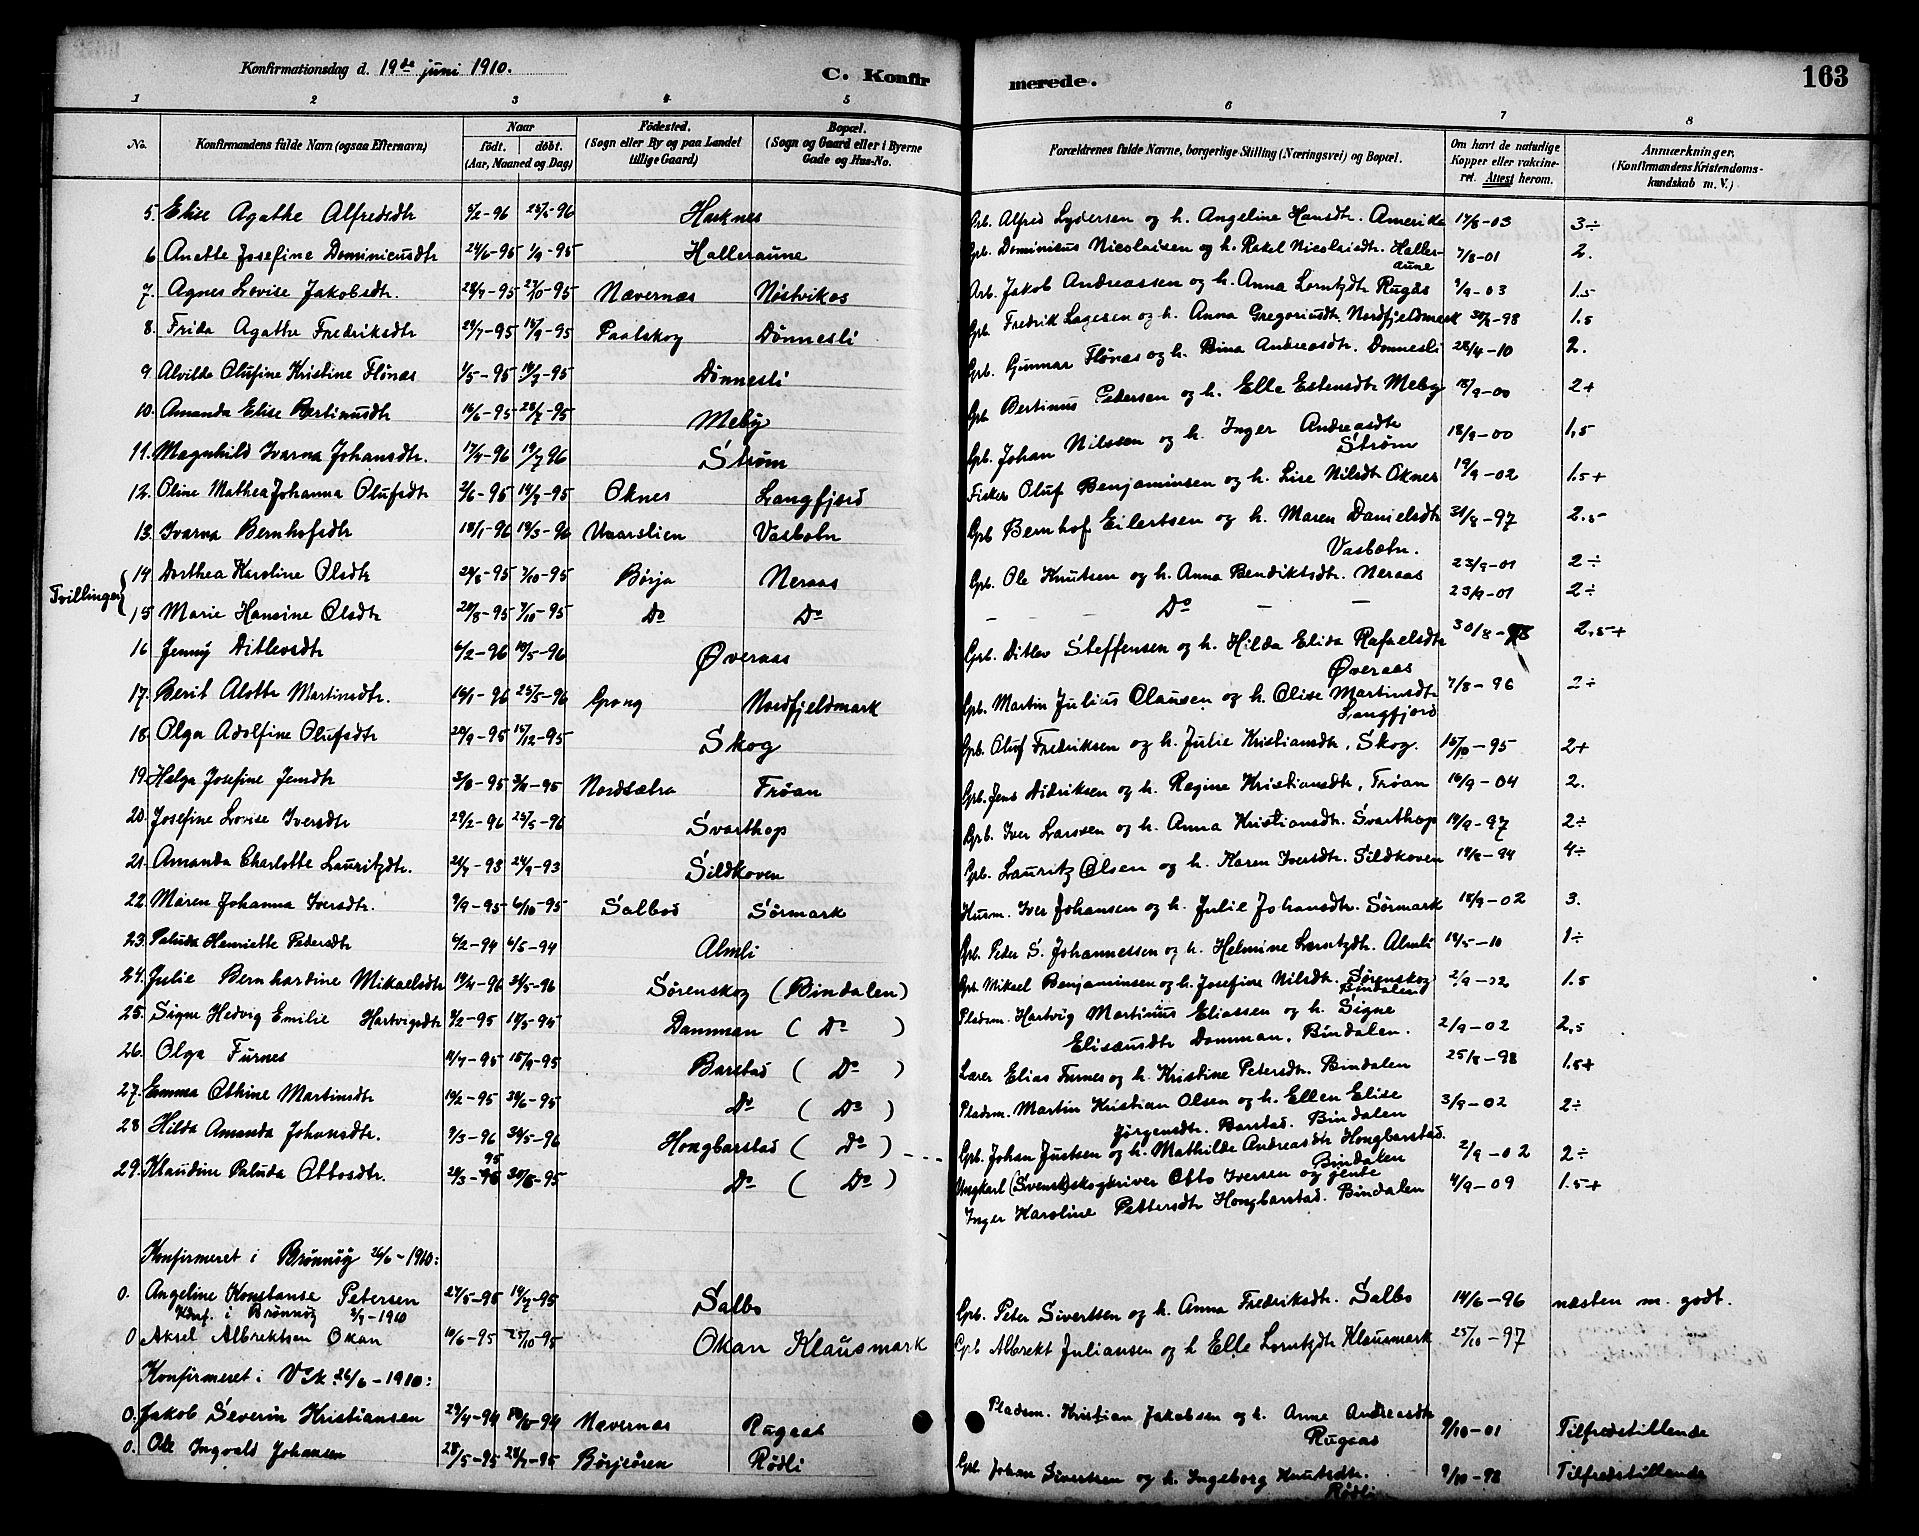 Konfirmationsdag d. 19de juni 1910.
C. Konfirmerede.
163
1 2 3 4 5 6 7 8
No. Konfirmandens fulde Navn (ogsaa Efternavn) Naar født. døbt. (Aar, Maaned og Dag) Fødested. (Sogn eller By og paa Landet tillige Gaard) Bopæl. (Sogn og Gaard eller i Byerne Gade og Hus-No. Forældrenes fulde Navne, borgerlige Stilling (Næringsvei) og Bopæl. Om havt de naturlige Kopper eller vakcineret. Attest herom. Anmærkninger. (Konfirmandens Kristendomskundskab m. V.)
5. Elise Agathe Alfredsdtr Harknes Arb. Alfred Lydersen og h. Angeline Hansdtr. Amerika 17/6-03 3÷
6 Anette Josefine Dominicusdtr 24/6-95 1/9-95 Halleraune Gpb. Dominicus Nicolaisen og h. Rakel Nicolaisdtr. Halleraune 7/8-01 2.
7. Agnes Lovise Jakobsdtr. 27/10-95 Nævernæs Nøstvikås Arb. Jakob Andreassen og h. Anna Lorntzdtr Rugås 9/9-03 1.5
8. Frida Agathe Fredriksdtr 29/7-95 15/9-95 Paalskog Dønnesli Gpb. Fredrik Lagesen og h. Anna Gregoriusdtr Nordfjeldmark 1.5
9 Alvilde Olufine Kristine Flønæs 1/5-95 14/7-95 Dønnesli Gpb. Gunnar Flønæs og h. Bina Andreasdtr. Dønnesli 28/4-10 2.
10. Amanda Elise Bertinusdtr 16/6-95 28/7-95 Meby Gpb. Bertinus Pedersen og h. Elle Estensdtr Meby 18/9-00 2+
11. Magnhild Ivarna Johansdtr. 19/7 96 Strøm Gpb. Johan Nilssen og h. Inger Andreasdtr Strøm 18/9-00 1,5
12. Oline Mathea Johanna Olufsdtr 2/6-95 14/7-95 Oknes Langfjord Fisker Oluf Benjaminsen og h. Lise Nilsdtr Oknes 19/9-02 1.5+
13. Ivarna Bernhofsdtr 18/1-96 Vaarslien Vasbotn Gpb Bernhof Eilertsen og h. Maren Danielsdtr Vasbotn. 31/8-97 2.5
Tvillinger
14 Dorthea Karoline Olsdtr 20/8-95 7/10-95 Børja Neraas Gpb. Ole Knutsen og h. Anna Bendiktsdtr. Neraas 23/9-01 2÷
15 Marie Hansine Olsdtr 20/8-95 7/10-95 Do Do - Do - - 23/9-01 2÷
16 Jenny Ditlevsdtr 6/2-96 10/5-96 Øveraas Gpb. Ditlev Steffensen og h. Hilda Elida Rafaelsdtr Øveraas 30/8-98 2,5+
17. Berit Alette Martinsdtr. 16/1-96 25/5-96 Grong Nordfjeldmark Gpb. Martin Julius Clausen og h. Elise Martinsdtr Langfjord 7/8-96 2÷
18. Olga Adolfine Olufsdtr 20/9-95 15/12-95 Skog Gpb. Oluf Fredriksen og h. Julie Kristiansdtr, Skog. 15/10-95 2+
19. Helga Josefine Jensdtr 3/8-95 3/11-95 Nordsætra Frøan Gpb. Jens Didriksen og h. Regine Kristiansdtr, Frøan 16/9-04 2.
20. Josefine Lovise Iversdtr 29/2-96 25/5-96 Svarthop Gpb. Iver Larssen og h. Anna Kristiansdtr. Svarthop 14/9-97 2÷
21. Amanda Charlotte Lauritzdtr. 24/9-93 Sildkoven Gpb. Lauritz Olsen og h. Karen Iversdtr. Sildkoven 14/8-94 4÷
22. Maren Johanna Iversdtr. 9/9-95 6/10-95 Salbod Sørmark Husm. Iver Johansen og h. Julie Johansdtr. Sørmark 18/9-02 3.
23. Paluda Henriette Pedersdtr 6/2-94 6/5-94 Almli Gpb. Peder S. Johannessen og h. Helmine Lorntzdtr. Almli 18/5-10 1÷
24. Julie Bernhardine Mikaelsdtr 19/4-96 Sørenskog (Bindalen) Gpb Mikael Benjaminsen og h. Josefine Nilsdtr. Sørenskog Bindalen 2/9-02 1.5
25. Signe Hedvig Emilie Hartvigsdtr 9/2-95 Damman ( Do ) Pladsm. Hartvig Martinus Eliassen og h. Signe Elisæusdtr Damman. Bindalen. 2/9-02 2,5
26. Olga Furnes 11/7-95 15/9-95 Barstad ( Do ) Lærer Elias Furnes og h. Kristine Petersdtr. Bindalen 25/8-98 1.5+
27. Emma Othine Martinsdtr 10/2-95 Do ( Do ) Pladsm. Martin Kristian Olsen og h. Ellen Elise Jørgensdtr. Barstad. Bindalen 3/9-02 2÷
28 Hilda Amanda Johansdtr. 9/3-96 Hongbarstad ( Do ) Gpb. Johan Justsen og h. Mathilde Andreasdtr Hongbarstad. Bindalen 2/9-02 2÷
29. Klaudine Paluda Ottosdtr. Do ( Do ) Ungkarl (Svensk) skogskriver Otto Iversen og jente Inger Karoline Pettersdtr Hongbarstad. Bindalen 4/9-09 1.5+
Konfirmeret i Brønnøy 26/6-1910:
0. Angeline Konstanse Petersen 27/5-95 14/7-95 Salbo Gpb. Peter Sivertsen og h. Anna Fredriksdtr. Salbo 14/6-96 næsten m. godt.
Konf. i Brønnøy 2/9-1910
0 Aksel Albrektsen Okan 10/6-95 25/10-95 Okan Klausmark Gpb Albrekt Juliansen og h Elle Lorntzdtr Klausmark 25/10-97
Konfirmeret i Vik 26/6-1910:
0. Jakob Severin Kristiansen 29/4-94 Nævernæs Rugaas Pladsm. Kristian Jakobsen og h. Anne Andreasdtr Rugaas 9/10-01 Tilfredstillende
0. Ole Ingvald Johansen 28/5-95 28/7-95 Børjeøren Rødli Gpb. Johan Sivertsen og h. Ingeborg Knutsdtr. Rødli 9/10-98 Tilfredstillende